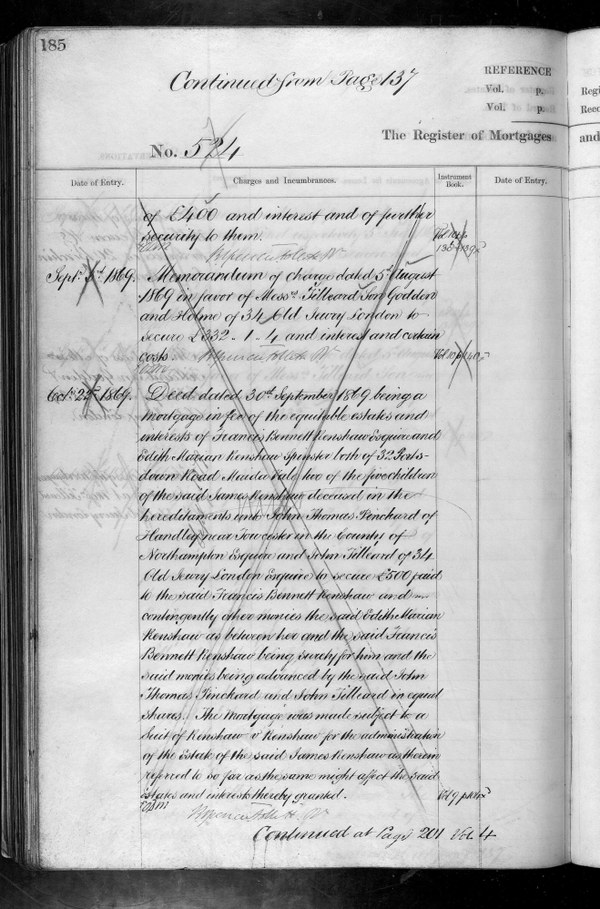 185
Continued from Page 137
REFERENCE
Vol. p.
Vol. p.
No. 524
The Register of Mortgages
and
Regi
Reco
Date of Entry.
Charges and Incumbrances.
Instrument Book.
Date of Entry.
of £1400 and interest and of further
security to them.
Sept. 1869. Memorandum of charge dated 5th August
1869 in favor of Messrs Tilleard Son Godden
and Holme of 34 Old Jewry London to
secure £332.. 1.. 4 and interest and certain
costs
Octr. 22nd 1869. Deed dated 30th September 1869 being a
mortgage in fee of the equitable estates and
interests of Francis Bennett Kenshaw Esquire and
Edith Marian Kenshaw Spinster both of 32 Ports-
down Road Maida Vale two of the five children
of the said James Kenshaw deceased in the
hereditaments unto John Thomas Pinchard of
Handley near Towcester in the County of
Northampton Esquire and John Tilleard of 34
Old Jewry London Esquire to secure £500 paid
to the said Francis Bennett Kenshaw and
contingently other monies the said Edith Marian
Kenshaw as between her and the said Francis
Bennett Kenshaw being surety for him and the
said monies being advanced by the said John
Thomas Pinchard and John Tilleard in equal
shares. The mortgage was made subject to a
Suit of Kenshaw v Kenshaw for the administration
of the Estate of the said James Kenshaw as therein
referred to so far as the same might affect the said
Estates and interests thereby granted.
Continued at Page 201 Vol. 4